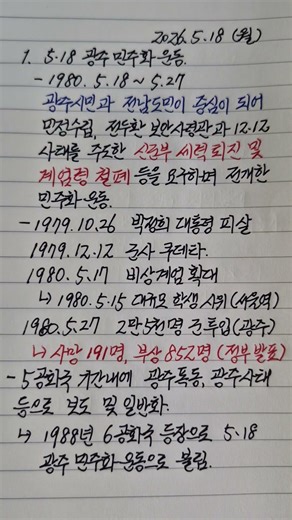 2026. 5. 18 (월)
1. 5·18 광주 민주화 운동.
- 1980. 5. 18 ~ 5. 27
광주시민과 전남도민이 중심이 되어
민정수립, 전두환 보안사령관과 12.12
사태를 주도한 신군부 세력 퇴진 및
계엄령 철폐 등을 요구하며 전개한
민주화 운동.
- 1979. 10. 26 박정희 대통령 피살
1979. 12. 12 군사 쿠데타.
1980. 5. 17 비상계엄 확대
↳ 1980. 5. 15 대규모 학생 시위 (서울역)
1980. 5. 27 2만 5천명 군 투입 (광주)
↳ 사망 191명, 부상 852명 (정부 발표)
- 5공화국 기간내에 광주폭동, 광주사태
등으로 보도 및 일반화.
↳ 1988년 6공화국 등장으로 5·18
광주 민주화 운동으로 불림.